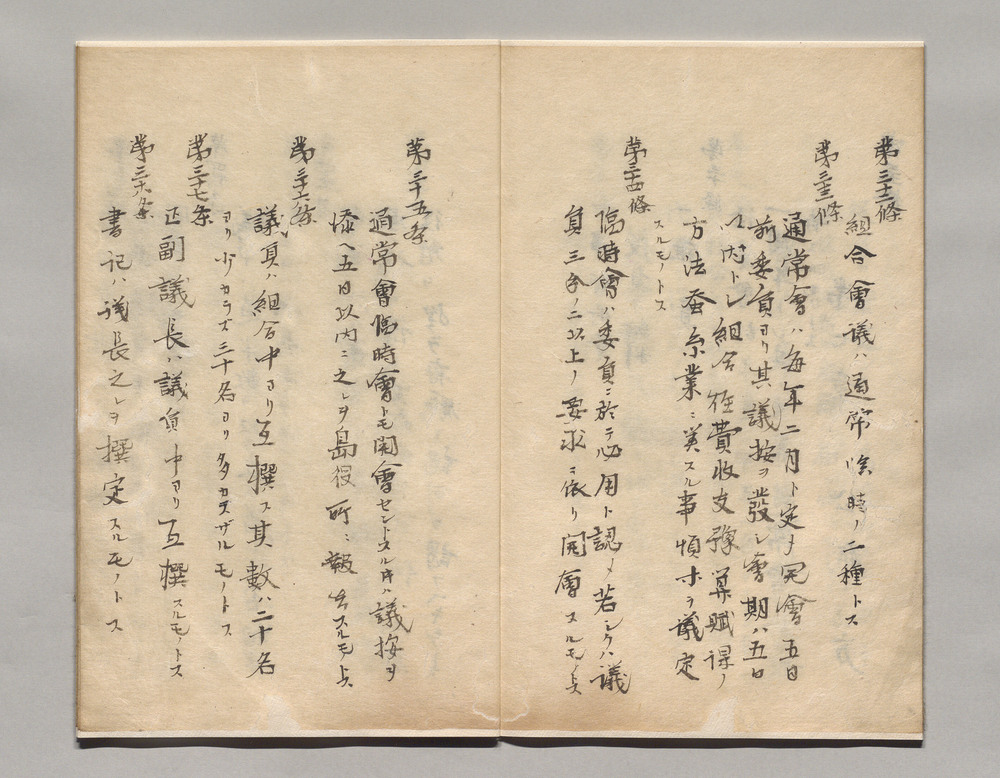 第三十二條
組合會議ハ通常臨時ノ二種トス
第三十三條
通常會ハ毎年二月ト定メ開會五日
前委員ヨリ其議按ヲ發シ會期ハ五日
以内トシ組合経費收支豫算賦課ノ
方法蚕糸業ニ関スル事項ホヲ議定
スルモノトス
第三十四條
臨時會ハ委員ニ於テ必用ト認メ若シクハ議
員三分ノ二以上ノ要求ニ依リ開會スルモノトス
第三十五条
通常會臨時會トモ開會セントスル時ハ議按ヲ
添ヘ五日以内ニ之レヲ島役所ニ報告スルモノトス
第三十六条
議員ハ組合中ヨリ互撰ス其數ハ二十名
ヨリ少カラズ三十名ヨリ多カラザルモノトス
第三十七条
正副議長ハ議員中ヨリ互撰スルモノトス
第三十八条
書記ハ議長之レヲ撰定スルモノトス